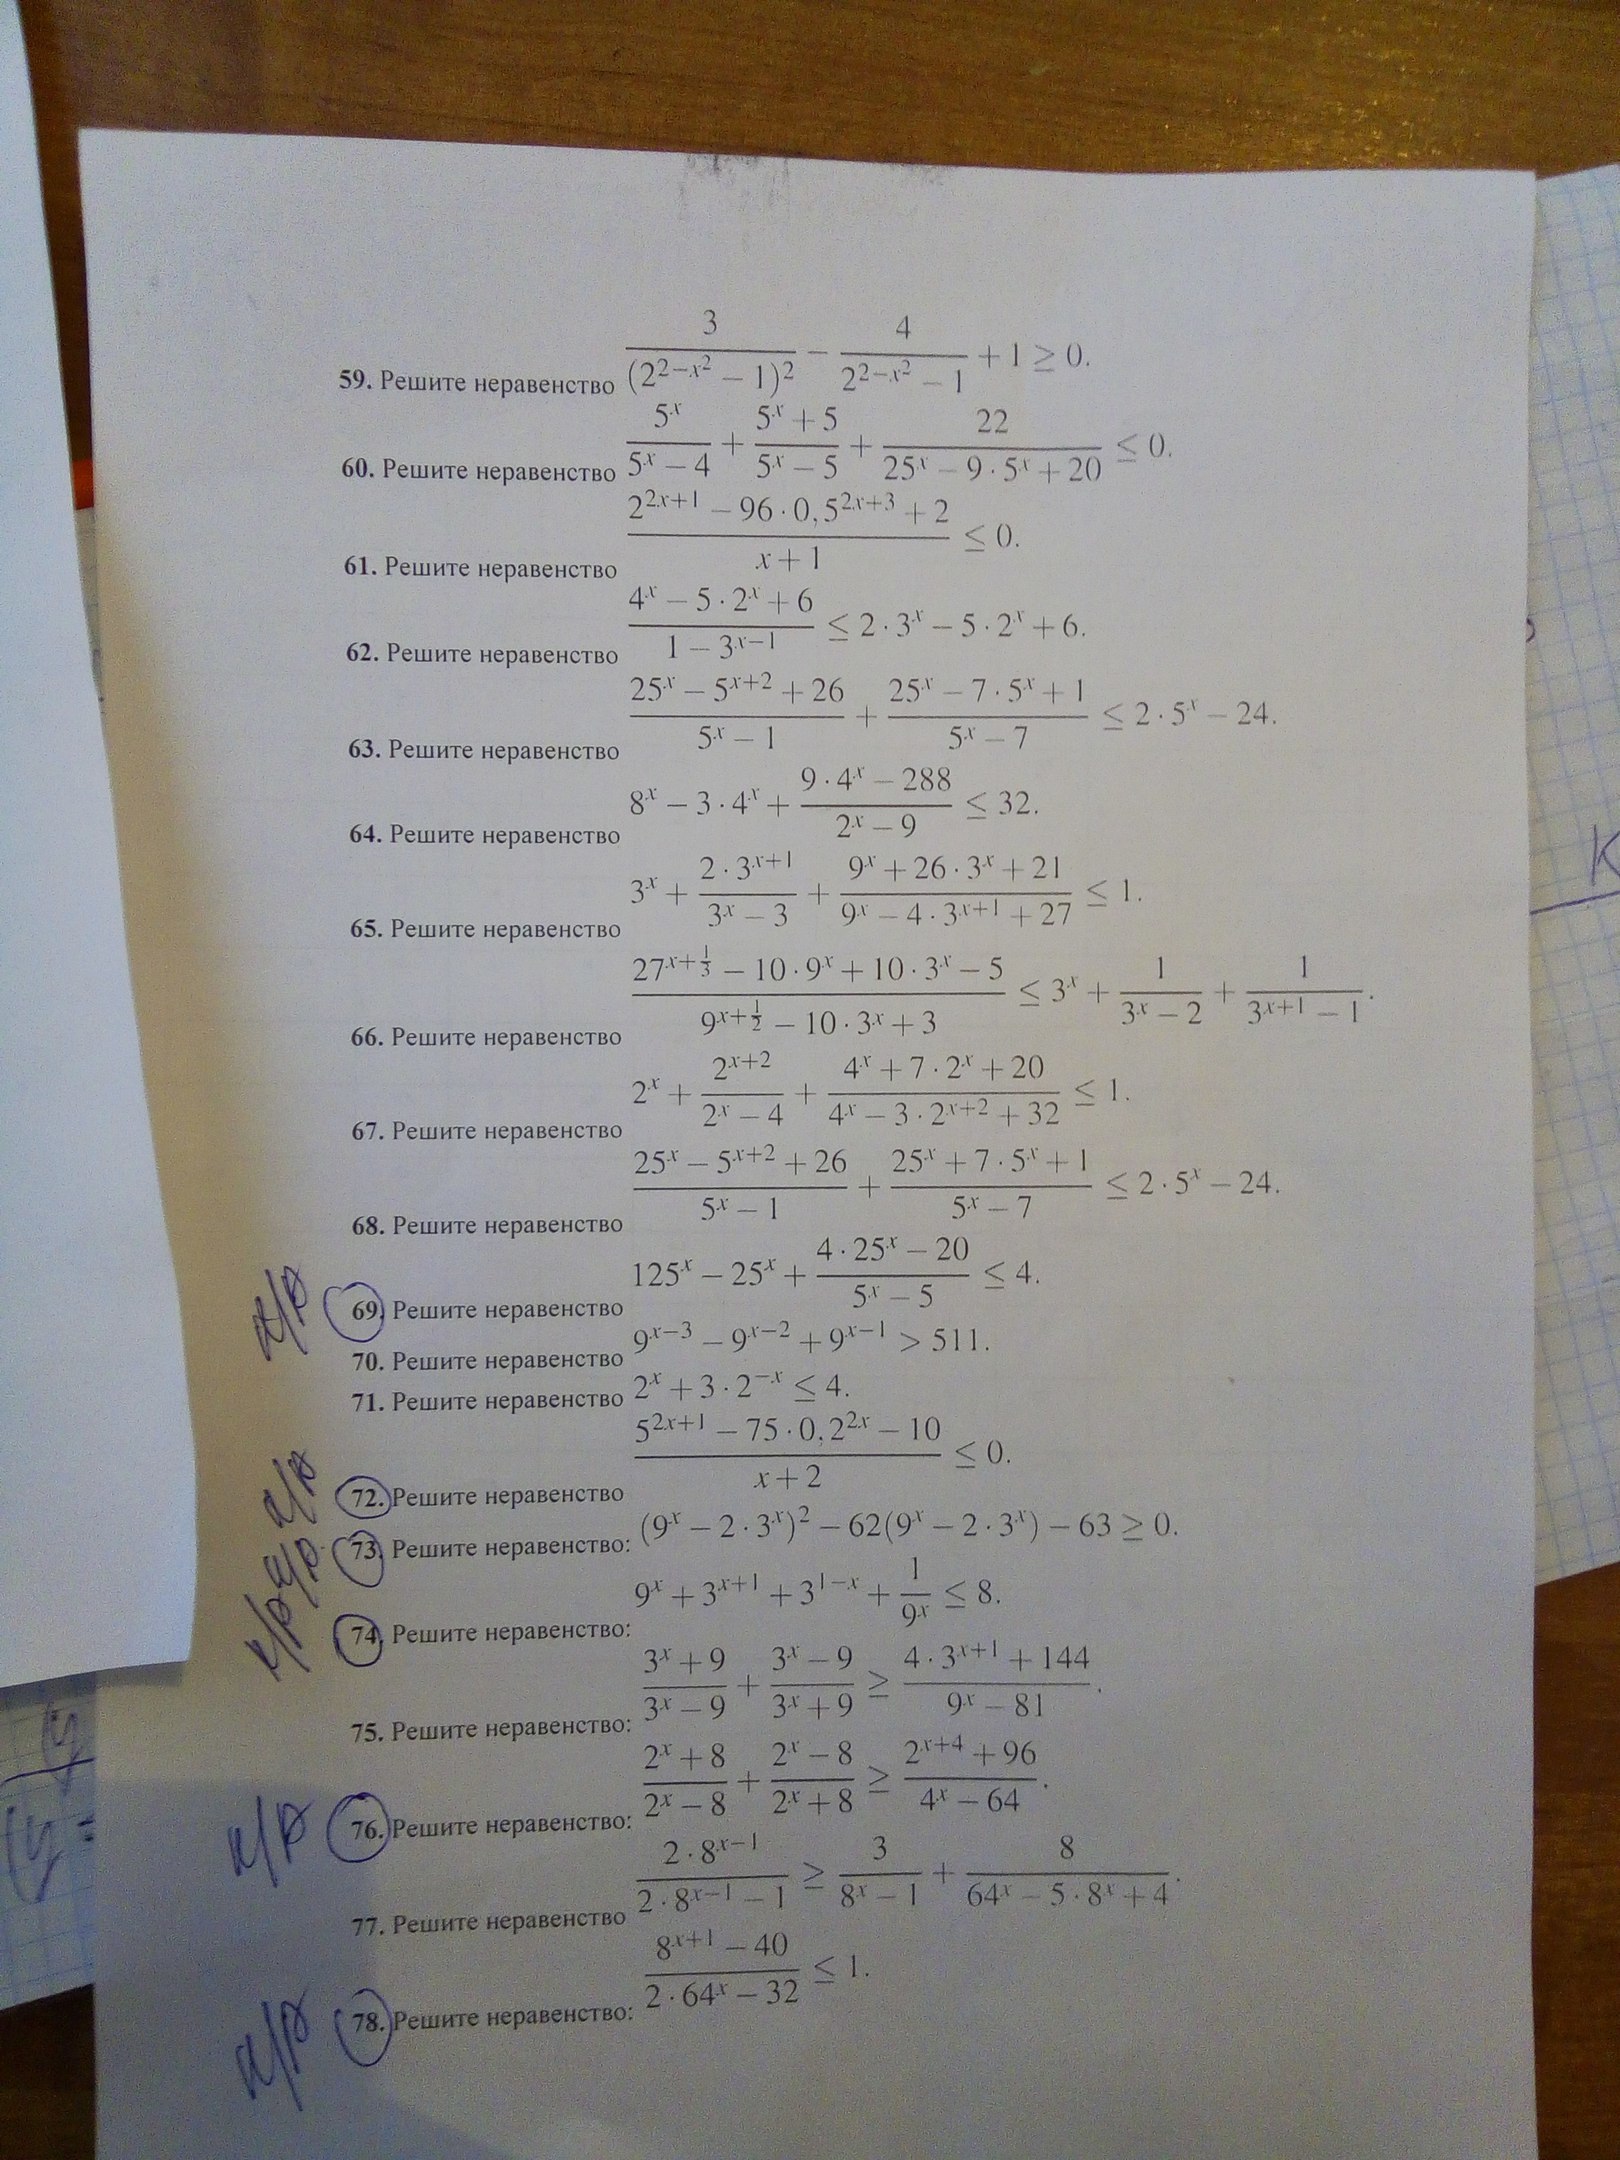 59. Решите неравенство 3/(2^{2−x^2} − 1)^2 − 4/(2^{2−x^2} − 1) + 1 ≥ 0.
60. Решите неравенство 5^x/(5^x − 4) + (5^x + 5)/(5^x − 5) + 22/(25^x − 9·5^x + 20) ≤ 0.
61. Решите неравенство (2^{2x+1} − 96·0,5^{2x+3} + 2)/(x + 1) ≤ 0.
62. Решите неравенство (4^x − 5·2^x + 6)/(1 − 3^{x−1}) ≤ 2·3^x − 5·2^x + 6.
63. Решите неравенство (25^x − 5^{x+2} + 26)/(5^x − 1) + (25^x − 7·5^x + 1)/(5^x − 7) ≤ 2·5^x − 24.
64. Решите неравенство 8^x − 3·4^x + (9·4^x − 288)/(2^x − 9) ≤ 32.
65. Решите неравенство 3^x + (2·3^{x+1})/(3^x − 3) + (9^x + 26·3^x + 21)/(9^x − 4·3^{x+1} + 27) ≤ 1.
66. Решите неравенство (27^{x+1/3} − 10·9^x + 10·3^x − 5)/(9^{x+1/2} − 10·3^x + 3) ≤ 3^x + 1/(3^x − 2) + 1/(3^{x+1} − 1).
67. Решите неравенство 2^x + 2^{x+2}/(2^x − 4) + (4^x + 7·2^x + 20)/(4^x − 3·2^{x+2} + 32) ≤ 1.
68. Решите неравенство (25^x − 5^{x+2} + 26)/(5^x − 1) + (25^x + 7·5^x + 1)/(5^x − 7) ≤ 2·5^x − 24.
69. Решите неравенство 125^x − 25^x + (4·25^x − 20)/(5^x − 5) ≤ 4.
70. Решите неравенство 9^{x−3} − 9^{x−2} + 9^{x−1} > 511.
71. Решите неравенство 2^x + 3·2^{−x} ≤ 4.
72. Решите неравенство (5^{2x+1} − 75·0,2^{2x} − 10)/(x + 2) ≤ 0.
73. Решите неравенство: (9^x − 2·3^x)^2 − 62(9^x − 2·3^x) − 63 ≥ 0.
74. Решите неравенство: 9^x + 3^{x+1} + 3^{1−x} + 1/9^x ≤ 8.
75. Решите неравенство: (3^x + 9)/(3^x − 9) + (3^x − 9)/(3^x + 9) ≥ (4·3^{x+1} + 144)/(9^x − 81).
76. Решите неравенство: (2^x + 8)/(2^x − 8) + (2^x − 8)/(2^x + 8) ≥ (2^{x+4} + 96)/(4^x − 64).
77. Решите неравенство (2·8^{x−1})/(2·8^{x−1} − 1) ≥ 3/(8^x − 1) + 8/(64^x − 5·8^x + 4).
78. Решите неравенство: (8^{x+1} − 40)/(2·64^x − 32) ≤ 1.